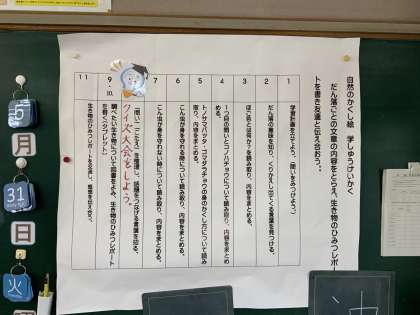 自然のかくし絵　学しゅうけいかく
だん落ごとの文章の内容をとらえ、生き物のひみつレポー
トを書き友達と伝え合おう。
1
学習計画を立てよう。（問いをみつけよう）
2
だん落の意味を知り、くりかえし出てくる言葉を見つける。
3
ほご色とは何か？を読み取り、内容をまとめる。
4
１つ目の問いとコノハチョウについて読み取り、内容をまとめる。
5
トノサマバッタ・ゴマダラチョウの身のかくし方について読み
取り、内容をまとめる。
6
こん虫が身を守れる時について読み取り、内容をまとめる。
7
こん虫が身を守れない時について読み取り、内容をまとめる。
8
「問い」「こたえ」を整理し、段落をつなげる言葉を知る。
クイズ大会をしよう。
9・10
調べたい生き物について図書をよみ、生き物のひみつレポート
を書く（タブレット）
11
生き物のひみつレポートを交流し、感想を伝え合う。
5
月
31
日
火